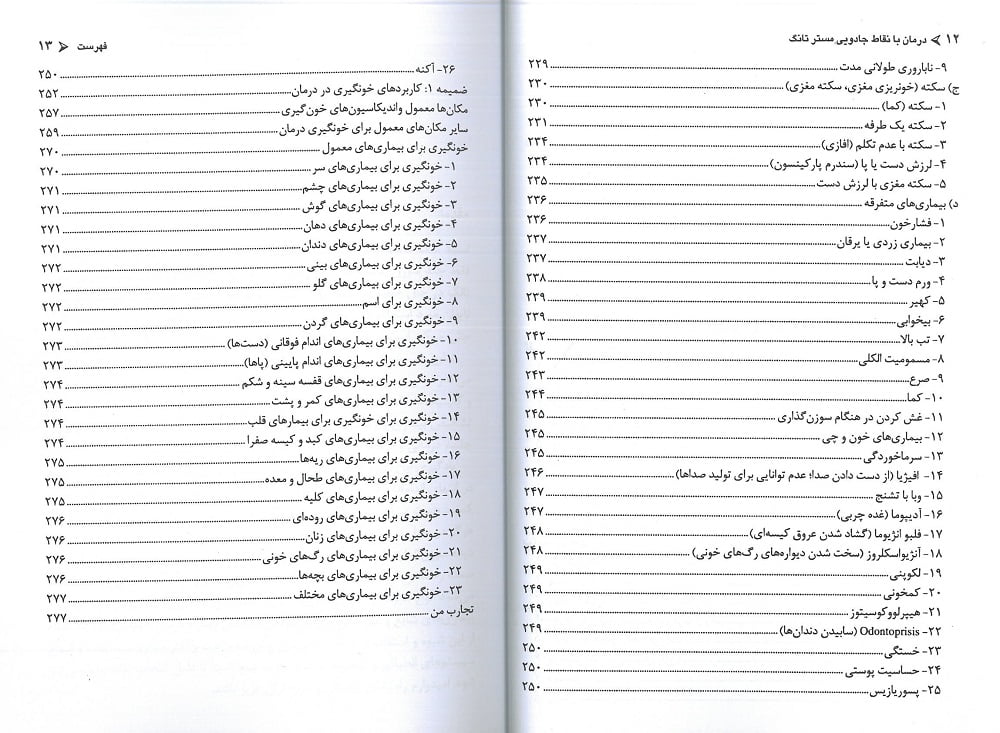 ۱۲ درمان با نقاط جادویی مستر تانگ
۹- ناباروری طولانی مدت ۲۲۹
ج) سکته (خونریزی مغزی، سکته مغزی) ۲۳۰
۱- سکته (کما) ۲۳۰
۲- سکته یک طرفه ۲۳۱
۳- سکته با عدم تکلم (افازی) ۲۳۴
۴- لرزش دست یا پا (سندرم پارکینسون) ۲۳۴
۵- سکته مغزی با لرزش دست ۲۳۵
د) بیماری‌های متفرقه ۲۳۶
۱- فشارخون ۲۳۶
۲- بیماری زردی یا یرقان ۲۳۷
۳- دیابت ۲۳۷
۴- ورم دست و پا ۲۳۸
۵- کهیر ۲۳۹
۶- بیخوابی ۲۳۹
۷- تب بالا ۲۴۲
۸- مسمومیت الکلی ۲۴۲
۹- صرع ۲۴۳
۱۰- کما ۲۴۴
۱۱- غش کردن در هنگام سوزن‌گذاری ۲۴۵
۱۲- بیماری‌های خون و چی ۲۴۵
۱۳- سرماخوردگی ۲۴۵
۱۴- افیژیا (از دست دادن صدا؛ عدم توانایی برای تولید صداها) ۲۴۶
۱۵- وبا با تشنج ۲۴۷
۱۶- آدیپوما (غده چربی) ۲۴۷
۱۷- فلبو انژیوما (گشاد شدن عروق کیسه‌ای) ۲۴۸
۱۸- آنژیواسکلروز (سخت شدن دیواره‌های رگ‌های خونی) ۲۴۸
۱۹- لکوپنی ۲۴۹
۲۰- کمخونی ۲۴۹
۲۱- هیپرلووکوسیتوز ۲۴۹
۲۲- Odontoprisis (ساییدن دندان‌ها) ۲۴۹
۲۳- خستگی ۲۵۰
۲۴- حساسیت پوستی ۲۵۰
۲۵- پسوریازیس ۲۵۰
فهرست ۱۳
۲۶- آکنه ۲۵۰
ضمیمه ۱: کاربردهای خونگیری در درمان ۲۵۲
مکان‌ها معمول واندیکاسیون‌های خون‌گیری ۲۵۷
سایر مکان‌های معمول برای خونگیری درمان ۲۵۹
خونگیری برای بیماری‌های معمول ۲۷۰
۱- خونگیری برای بیماری‌های سر ۲۷۰
۲- خونگیری برای بیماری‌های چشم ۲۷۱
۳- خونگیری برای بیماری‌های گوش ۲۷۱
۴- خونگیری برای بیماری‌های دهان ۲۷۱
۵- خونگیری برای بیماری‌های دندان ۲۷۱
۶- خونگیری برای بیماری‌های بینی ۲۷۲
۷- خونگیری برای بیماری‌های گلو ۲۷۲
۸- خونگیری برای اسم ۲۷۲
۹- خونگیری برای بیماری‌های گردن ۲۷۲
۱۰- خونگیری برای بیماری‌های اندام فوقانی (دست‌ها) ۲۷۳
۱۱- خونگیری برای بیماری‌های اندام پایینی (پاها) ۲۷۳
۱۲- خونگیری برای بیماری‌های قفسه سینه و شکم ۲۷۴
۱۳- خونگیری برای بیماری‌های کمر و پشت ۲۷۴
۱۴- خونگیری برای خونگیری برای بیمارهای قلب ۲۷۴
۱۵- خونگیری برای بیماری‌های کبد و کیسه صفرا ۲۷۴
۱۶- خونگیری برای بیماری‌های ریه‌ها ۲۷۵
۱۷- خونگیری برای بیماری‌های طحال و معده ۲۷۵
۱۸- خونگیری برای بیماری‌های کلیه ۲۷۵
۱۹- خونگیری برای بیماری‌های روده‌ای ۲۷۶
۲۰- خونگیری برای بیماری‌های زنان ۲۷۶
۲۱- خونگیری برای بیماری‌های رگ‌های خونی ۲۷۶
۲۲- خونگیری برای بیماری‌های بچه‌ها ۲۷۶
۲۳- خونگیری برای بیماری‌های مختلف ۲۷۷
تجارب من ۲۷۷